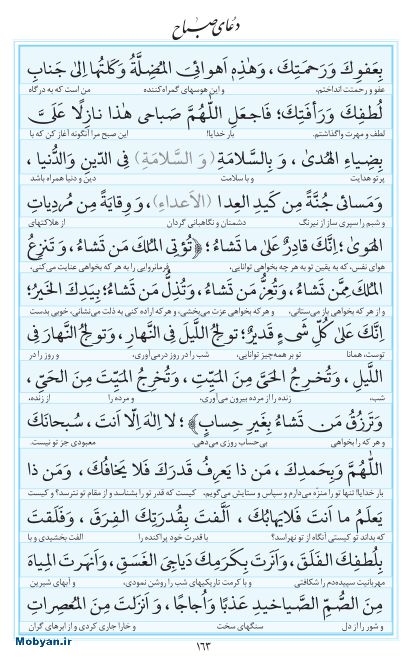 دعای صباح
بِعَفوِكَ وَرَحمَتِكَ ، وَهٰذِهِ اَهوائِىَ المُضِلَّةُ وَكَلتُها اِلىٰ جَنابِ
عفو و رحمتت انداختم، و این هوسهای گمراه‌کننده من است که به درگاه
لُطفِكَ وَرَأفَتِكَ؛ فَاجعَلِ اللّٰهُمَّ صَباحى هٰذا نازِلًا عَلَىَّ
لطف و مهرت واگذاشتم. بار خدایا! این صبح مرا آنگونه آغاز کن که با
بِضِياءِ الهُدىٰ ، وَ بِالسَّلامَةِ (وَ السَّلامَةِ) فِى الدّينِ وَالدُّنيا ،
پرتو هدایت و با سلامت دین و دنیا همراه باشد
وَمَسائى جُنَّةً مِن كَيدِ العِدا (الاَعداءِ) ، وَ وِقايَةً مِن مُردِياتِ
و شبم را سپری ساز از نیرنگ دشمنان و نگاهبانی گردان از هلاکتهای
الهَوىٰ ؛ اِنَّكَ قادِرٌ عَلىٰ ما تَشاءُ ؛ ﴿تُؤتِى المُلكَ مَن تَشاءُ ، وَ تَنزِعُ
هوای نفس، که به یقین تو به هر چه بخواهی توانایی، فرمانروایی را به هر که بخواهی عنایت می‌کنی،
المُلكَ مِمَّن تَشاءُ ، وَتُعِزُّ مَن تَشاءُ ، وَتُذِلُّ مَن تَشاءُ ؛ بِيَدِكَ الخَيرُ؛
و از هر که بخواهی باز می‌ستانی، و هر که بخواهی عزت می‌بخشی، و هر که اراده کنی به ذلت می‌نشانی، خوبی بدست
اِنَّكَ عَلىٰ كُلِّ شَىءٍ قَديرٌ؛ تولِجُ اللَّيلَ فِى النَّهارِ ، وَتولِجُ النَّهارَ فِى
توست، همانا تو بر همه‌چیز توانایی، شب را در روز درمی‌آوری، و روز را در
اللَّيلِ ، وَتُخرِجُ الحَىَّ مِنَ المَيِّتِ ، وَتُخرِجُ المَيِّتَ مِنَ الحَىِّ ،
شب، زنده را از مرده بیرون می‌آوری، و مرده را از زنده،
وَتَرزُقُ مَن تَشاءُ بِغَيرِ حِسابٍ﴾؛ لا اِلٰهَ اِلّا اَنتَ ، سُبحانَكَ
و هر که را بخواهی بی‌حساب روزی می‌دهی. معبودی جز تو نیست.
اللّٰهُمَّ وَبِحَمدِكَ ، مَن ذا يَعرِفُ قَدرَكَ فَلا يَخافُكَ ، وَمَن ذا
بار خدایا! تنها تو را منزه می‌دارم و سپاس و ستایش می‌گویم، کیست که قدر تو را بشناسد و از مقام تو نترسد؟ و کیست
يَعلَمُ ما اَنتَ فَلايَهابُكَ ، اَلَّفتَ بِقُدرَتِكَ الفِرَقَ ، وَفَلَقتَ
که بداند تو کیستی آنگاه از تو نهراسد؟ با قدرت خود پراکنده را الفت بخشیدی و با
بِلُطفِكَ الفَلَقَ ، وَاَنَرتَ بِكَرَمِكَ دَياجِىَ الغَسَقِ ، وَاَنهَرتَ المِياهَ
مهربانیت سپیده‌دم را شکافتی و با کرمت تاریکیهای شب را روشن نمودی، و آبهای شیرین
مِنَ الصُّمِّ الصَّياخيدِ عَذبًا وَاُجاجًا ، وَ اَنزَلتَ مِنَ المُعصِراتِ
و شور را از دل سنگهای سخت و خارا جاری کردی و از ابرهای گران
۱۶۳
Mobyan.ir